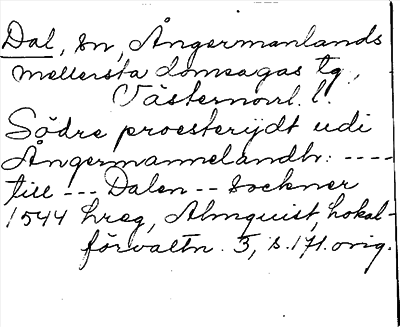 Dal, sn, Ångermanlands
mellersta domsagas tg.,
Västernorrl. l.
Södre proesterijdt udi
Ångermannelandtr: ----
till --- Dalen -- sockner
1544 hreg, Almquist, Lokal-
förvaltn. 3, s. 171. orig.